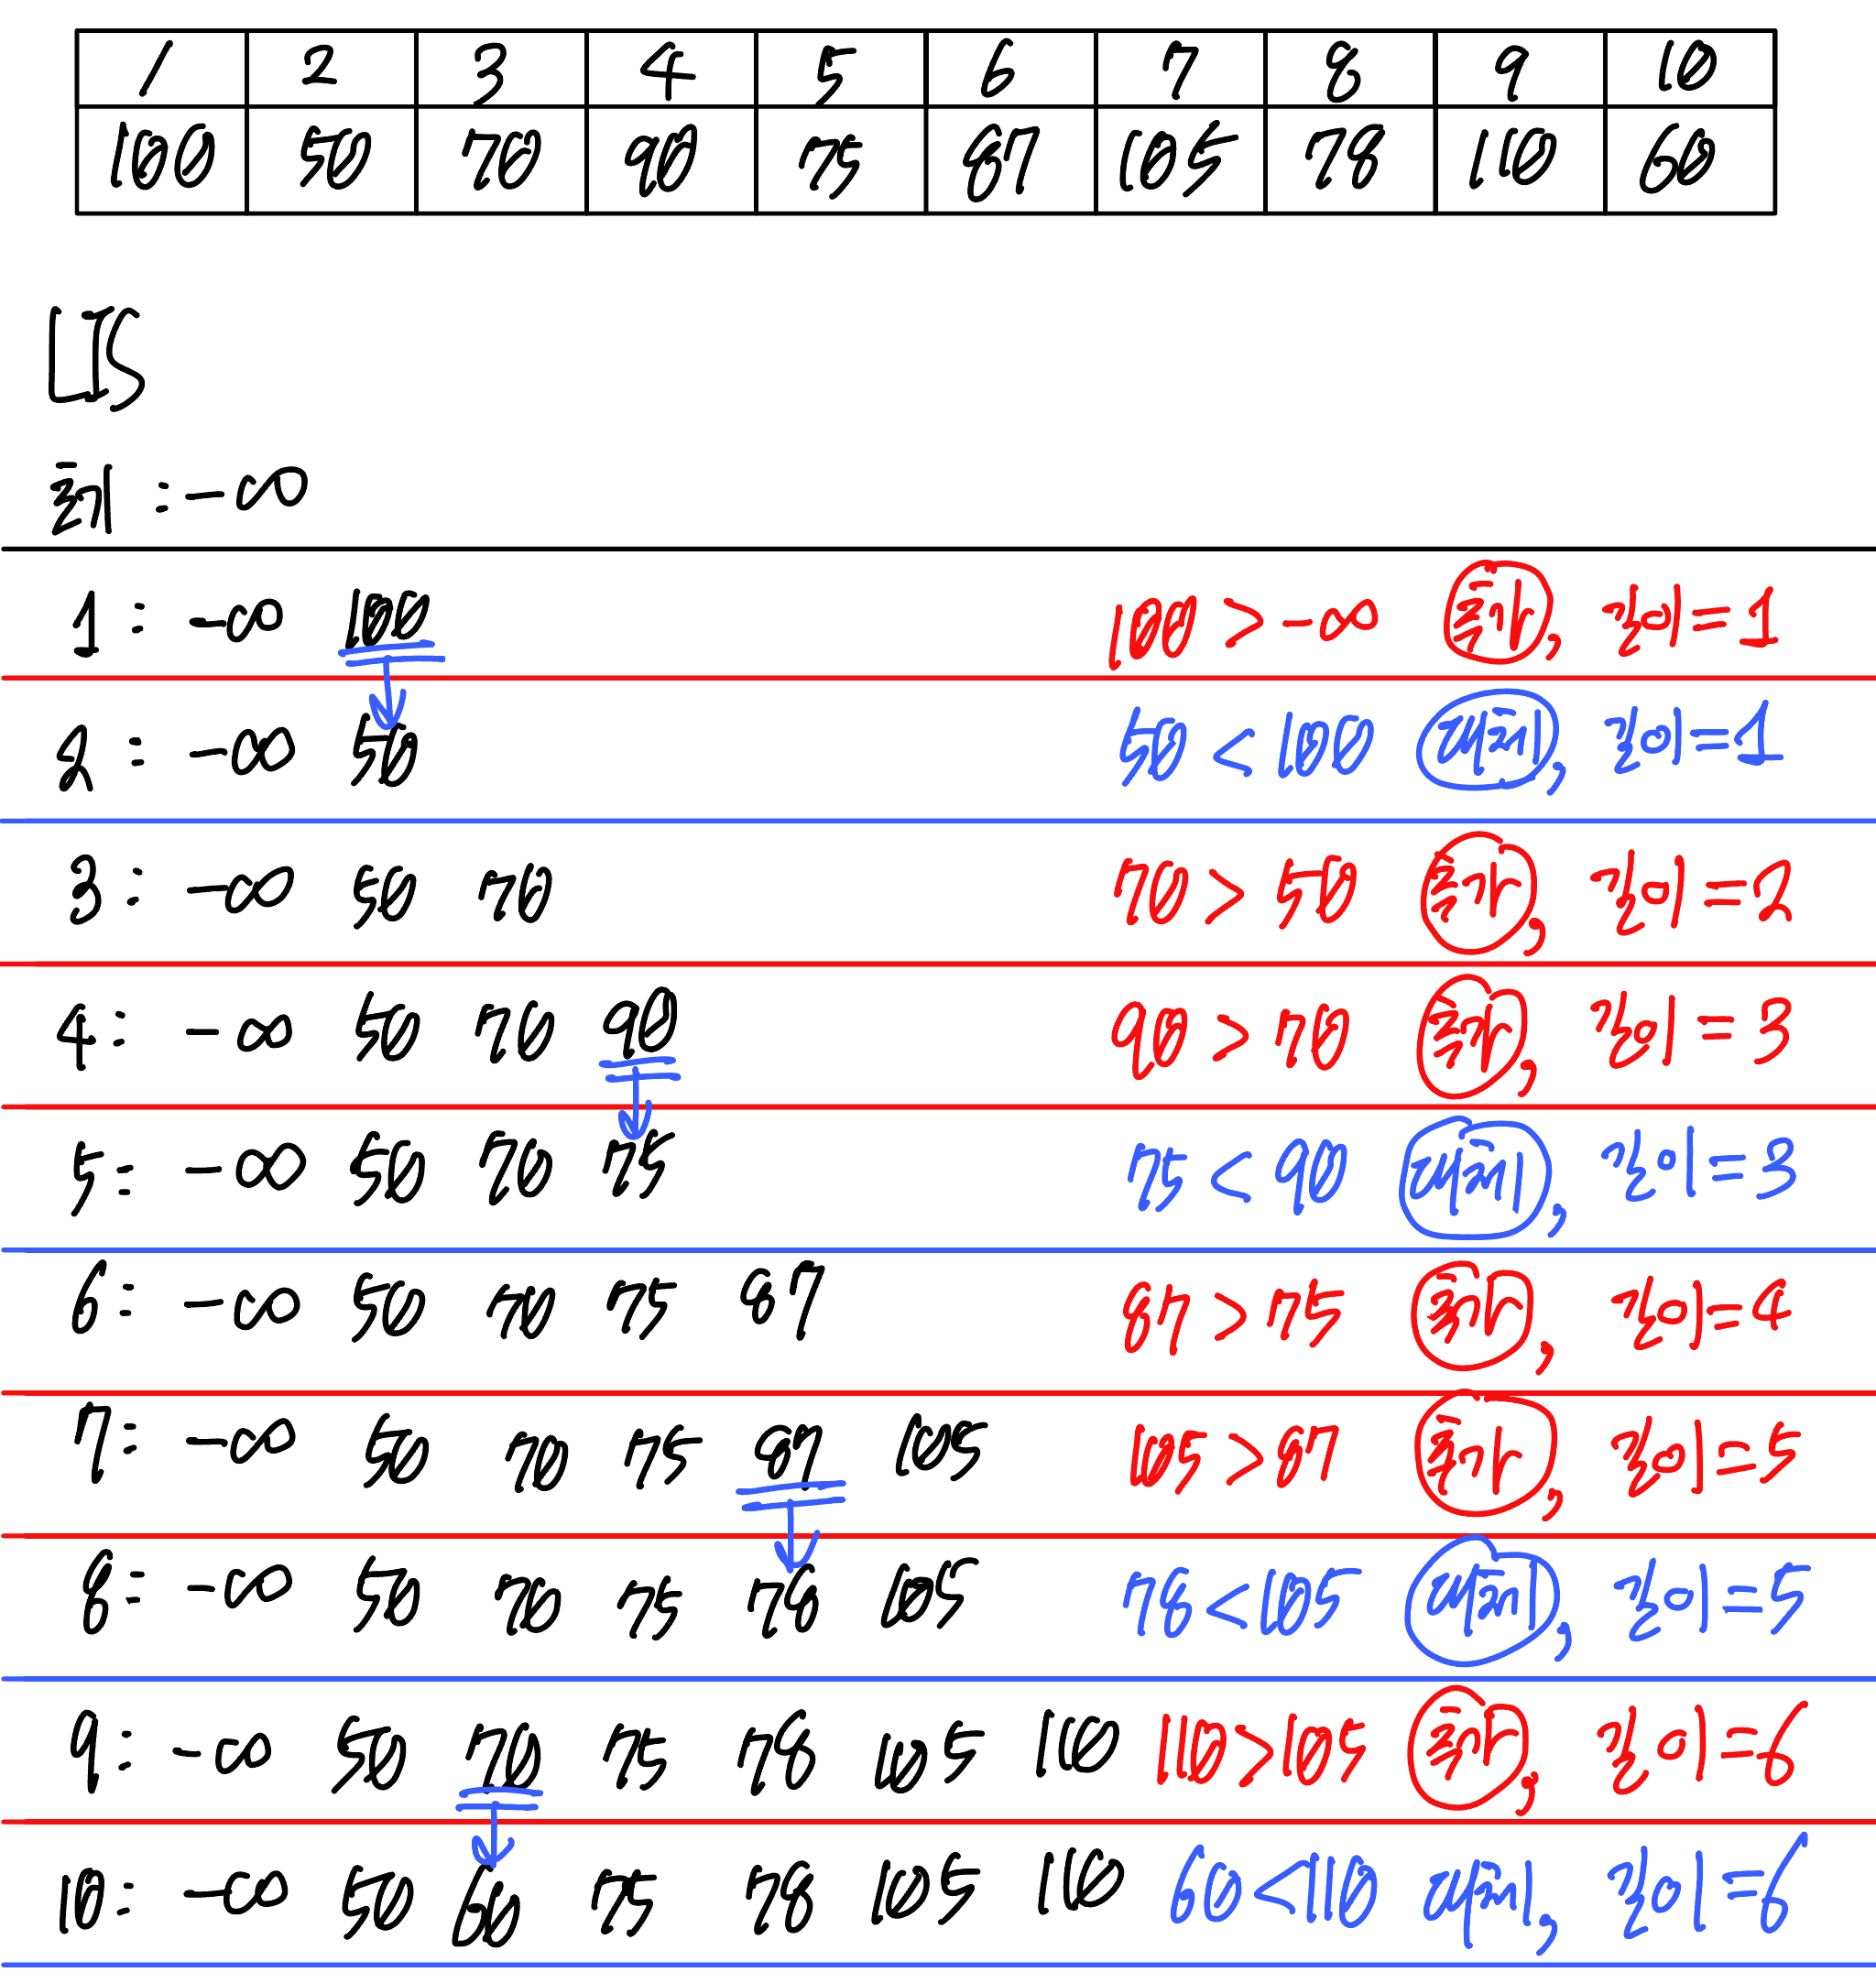 1 2 3 4 5 6 7 8 9 10
100 50 70 90 75 87 105 78 110 60
LIS
초기 : -∞
1 : -∞ 100 100 > -∞ 추가, 길이 = 1
2 : -∞ 50 50 < 100 대체, 길이 = 1
3 : -∞ 50 70 70 > 50 추가, 길이 = 2
4 : -∞ 50 70 90 90 > 70 추가, 길이 = 3
5 : -∞ 50 70 75 75 < 90 대체, 길이 = 3
6 : -∞ 50 70 75 87 87 > 75 추가, 길이 = 4
7 : -∞ 50 70 75 87 105 105 > 87 추가, 길이 = 5
8 : -∞ 50 70 75 78 105 78 < 105 대체, 길이 = 5
9 : -∞ 50 70 75 78 105 110 110 > 105 추가, 길이 = 6
10 : -∞ 50 60 75 78 105 110 60 < 110 대체, 길이 = 6